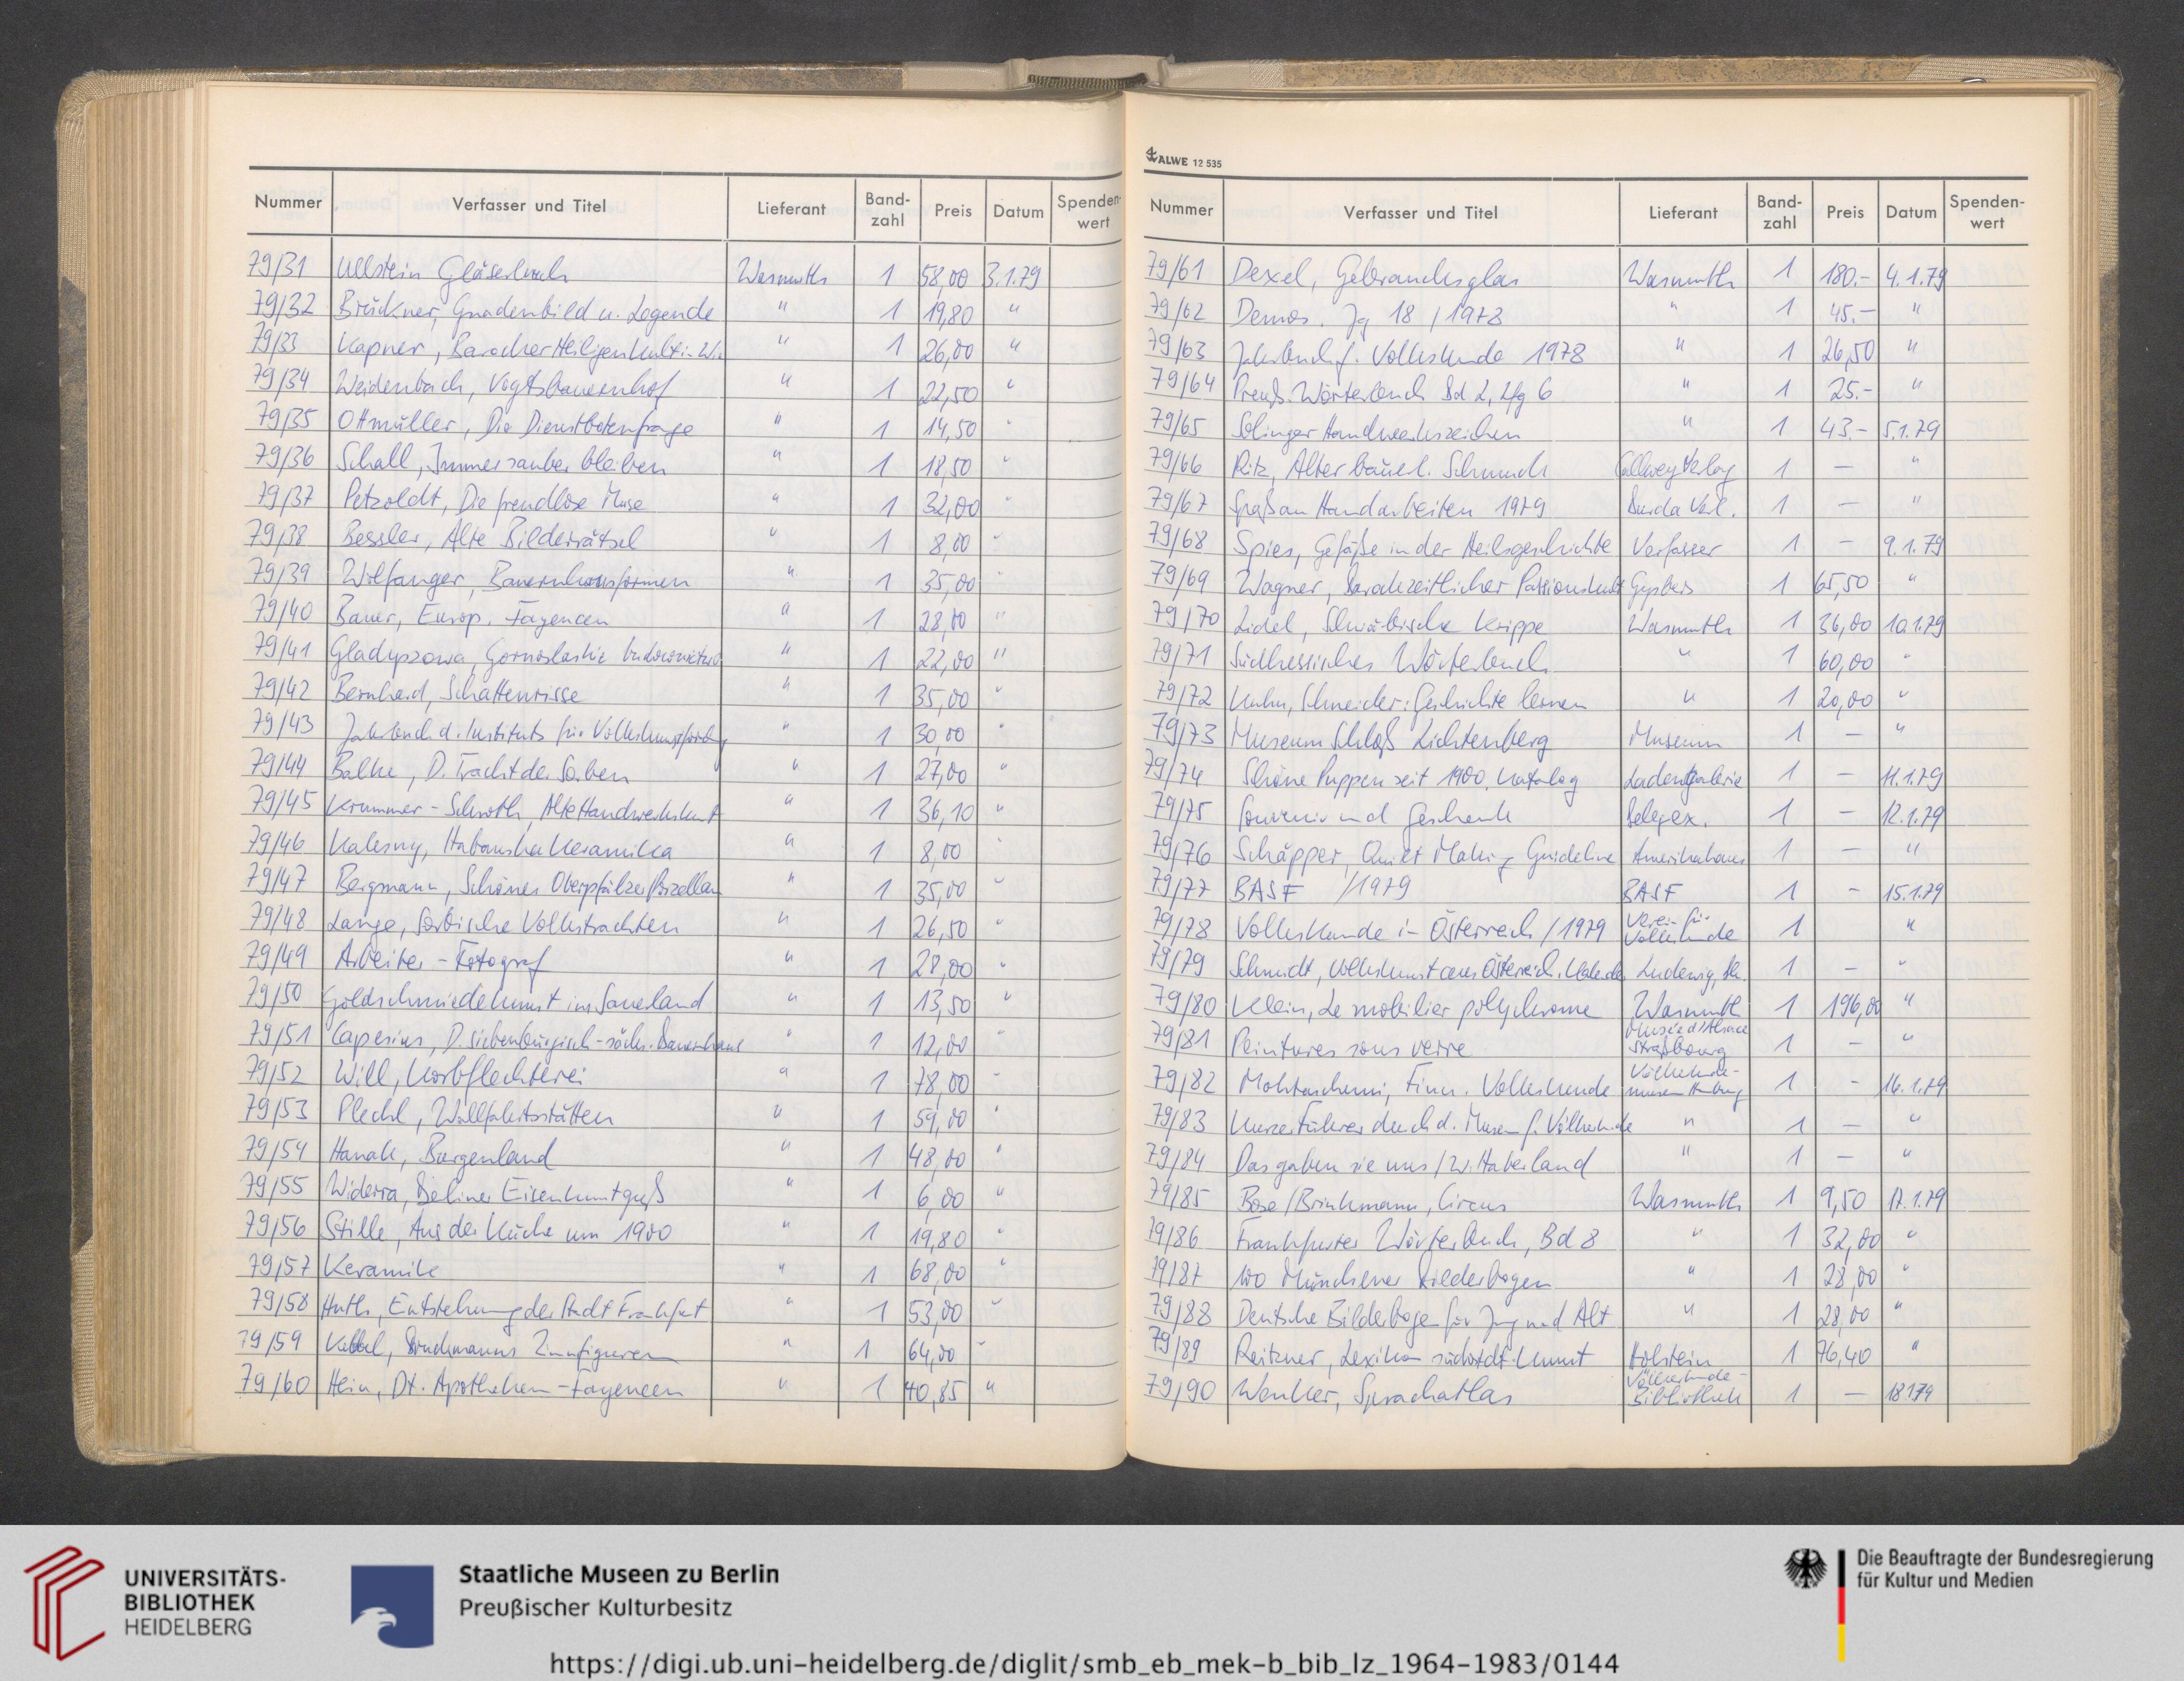 Nummer Verfasser und Titel Lieferant Band-zahl Preis Datum Spenden-wert
79/31 Ullstein Gläserbuch Wasmuth 1 58,00 3.1.79
79/32 Brückner, Gnadenbild u. Legende " 1 19,80 "
79/33 Kapner, Barocker Heiligenkult in Wi. " 1 26,00 "
79/34 Weidenbach, Vogtsbauernhof " 1 22,50 "
79/35 Ottmüller, Die Dienstbotenfrage " 1 14,50 "
79/36 Schall, Immer sauber bleiben " 1 18,50 "
79/37 Petzoldt, Die freudlose Muse " 1 32,00 "
79/38 Bessler, Alte Bilderrätsel " 1 8,00 "
79/39 Wolfanger, Bauernhausformen " 1 35,00 "
79/40 Bauer, Europ. Fayencen " 1 28,00 "
79/41 Gladyszowa, Gornoslaskie " 1 22,00 "
79/42 Bernhard, Schattenrisse " 1 35,00 "
79/43 Jahrbuch d. Instituts für Volkskunstforschg " 1 30,00 "
79/44 Balke, D. Tracht der Sorben " 1 27,00 "
79/45 Krummer-Schroth, Alte Handwerkskunst " 1 36,10 "
79/46 Kalesny, Habanska Keramika " 1 8,00 "
79/47 Bergmann, Schönes Oberpfälzer Porzellan " 1 35,00 "
79/48 Lange, Sorbische Volkstrachten " 1 26,50 "
79/49 Arbeiter-Fotograf " 1 28,00 "
79/50 Goldschmiedekunst im Sauerland " 1 13,50 "
79/51 Capesius, D. siebenbürgisch-sächs. Bauernhaus " 1 12,00 "
79/52 Will, Korbflechterei " 1 78,00 "
79/53 Plechl, Wallfahrtsstätten " 1 59,00 "
79/54 Hanak, Burgenland " 1 48,00 "
79/55 Widerra, Berliner Eisenkunstguß " 1 6,00 "
79/56 Stille, Aus der Küche um 1900 " 1 19,80 "
79/57 Keramik " 1 68,00 "
79/58 Huth, Entstehung der Stadt Frankfurt " 1 53,00 "
79/59 Kebbel, Bruckmanns Zinnfiguren " 1 64,00 "
79/60 Hein, Dt. Apotheken-Fayencen " 1 40,85 "
ALWE 12 535
Nummer Verfasser und Titel Lieferant Band-zahl Preis Datum Spenden-wert
79/61 Dexel, Gebrauchsglas Wasmuth 1 180.- 4.1.79
79/62 Demos. Jg 18 / 1978 " 1 45.- "
79/63 Jahrbuch f. Volkskunde 1978 " 1 26,50 "
79/64 Preuß. Wörterbuch Bd 2, Lfg 6 " 1 25.- "
79/65 Solinger Handwerkszeichen " 1 43.- 5.1.79
79/66 Ritz, Alter bäuerl. Schmuck Callwey Verlag 1 — "
79/67 Spaß an Handarbeiten 1979 Burda Verl. 1 — "
79/68 Spies, Gefäße in der Heilsgeschichte Verfasser 1 — 9.1.79
79/69 Wagner, Barockzeitlicher Passionskult 1 65,50 "
79/70 Lidel, Schwäbische Krippe Wasmuth 1 36,00 10.1.79
79/71 Südhessisches Wörterbuch " 1 60,00 "
79/72 Kuhn, Schneider: Geschichte lernen " 1 20,00 "
79/73 Museum Schloß Lichtenberg Museum 1 — "
79/74 Schöne Puppen seit 1900. Katalog Ladengalerie 1 — 11.1.79
79/75 Souvenir und Geschenk Belegex. 1 — 12.1.79
79/76 Schäpper, Quilt Making Guideline Amerikahaus 1 — "
79/77 BASF /1979 BASF 1 - 15.1.79
79/78 Volkskunde in Österreich /1979 Verein für Volkskunde 1 "
79/79 Schmidt, Volkskunst aus Österreich. Kalender Ludewig, Th. 1 — "
79/80 Klein, Le mobilier polychrome Wasmuth 1 196,00 "
79/81 Peintures sous verre Musée d'Alsace Straßbourg 1 — "
79/82 Mohtaschemi, Finn. Volkskunde Völkerkunde-museum Hamburg 1 - 16.1.79
79/83 Kurzer Führer durch d. Museum f. Völkerkunde " 1 — "
79/84 Das gaben sie uns / W. Haberland " 1 — "
79/85 Bose/Brinkmann, Circus Wasmuth 1 9,50 17.1.79
79/86 Frankfurter Wörterbuch, Bd 8 " 1 32,00 "
79/87 100 Münchener Bilderbogen " 1 28,00 "
79/88 Deutsche Bilderbogen für Jung und Alt " 1 28,00 "
79/89 Reitzner, Lexikon südostdt. Kunst Holstein 1 76,40 "
79/90 Wenker, Sprachatlas Völkerkunde-Bibliothek 1 — 18.1.79
UNIVERSITÄTS-
BIBLIOTHEK
HEIDELBERG
Staatliche Museen zu Berlin
Preußischer Kulturbesitz
Die Beauftragte der Bundesregierung
für Kultur und Medien
https://digi.ub.uni-heidelberg.de/diglit/smb_eb_mek-b_bib_lz_1964-1983/0144